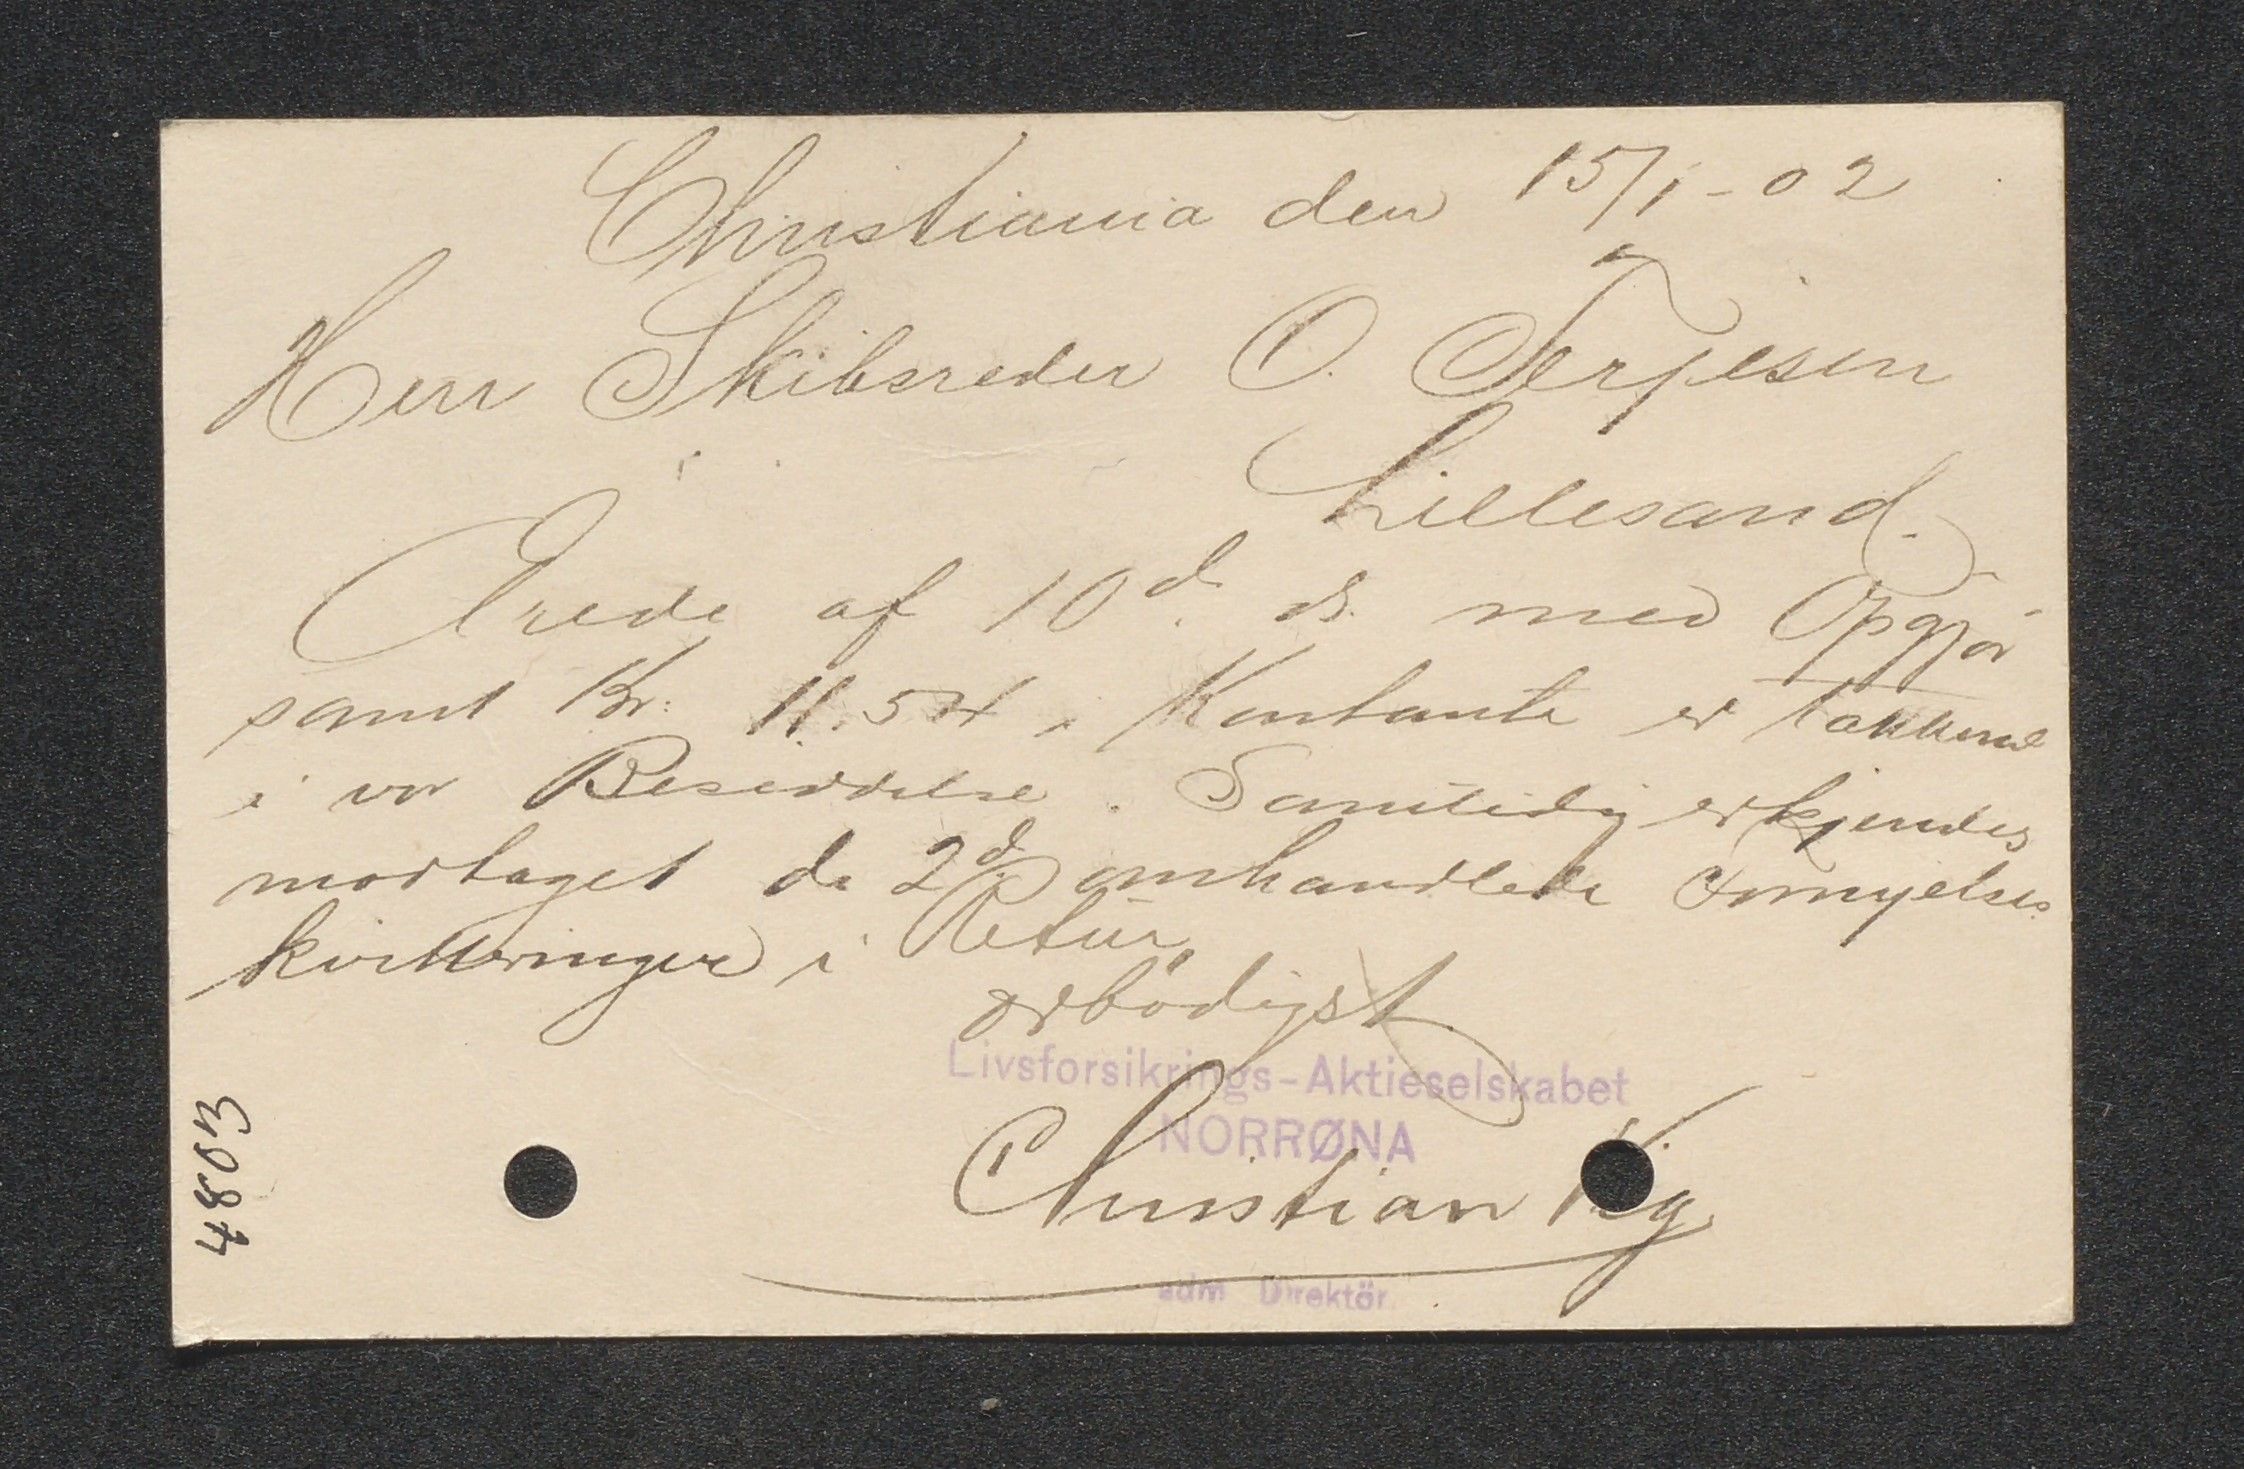 Christiania den 15/1-02
Herr Skibsreder O. Terjesen
Lillesand.
Ærede af 10d. ds. med Opgjør
samt Kr. 11.54 i Kontante er takkende
i vor Besiddelse. Samtidig erkjendes
modtaget de 2d. omhandlede Fornyelses
kvitteringer i Retur.
ærbødigst
Livsforsikrings-Aktieselskabet
NORRØNA
Christian
adm Direktör.
4803